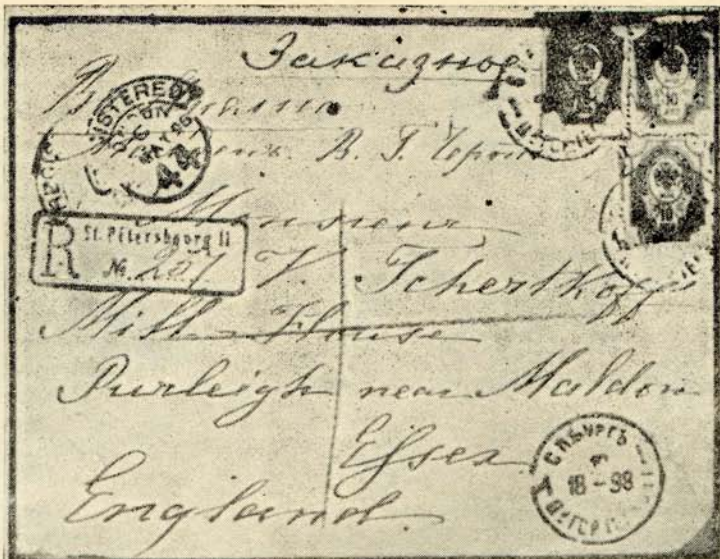 Заказное
В Англию
В. Г. Черт
REGISTERED
LONDON
MAY 98
44
R St. Pétersbourg II
№ 207
Monsieur
V. Tchertkoff
Mill House
Purleigh near Maldon
Essex
England.
10
10
С.ПБУРГЪ
18-98